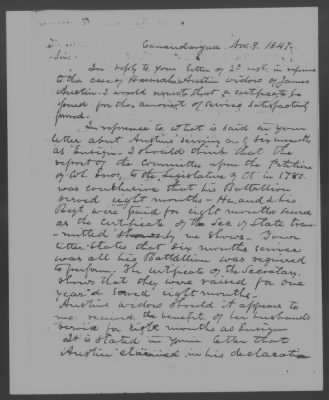 Canandaigua Nov. 9. 1847.
Sir
In reply to your letter of 2d inst in reference
to the case of Hannah Austin widow of James
Austin - I would request that a certificate be
issued for the amount of service satisfactorily
proved.
In reference to what is said in your
letter about Austin's serving only six months
as Ensign I should think that the
report of the Committee upon the Petition
of Col. Enos, to the Legislature of Ct in 1780.
was conclusive that his Battallion
served eight months - He and his
Regt. were paid for eight months service
as the certificate of the Sec. of State
mitted shows. Your
letter states that six months service
was all his Battallion was required
to perform. The certificate of the Secretary
shows that they were raised for one
year & served eight months -
Austin's widow should it appears to
me receive the benefit of her husbands
service for eight months as Ensign
It is stated in your letter that
Austin claimed in his declaration